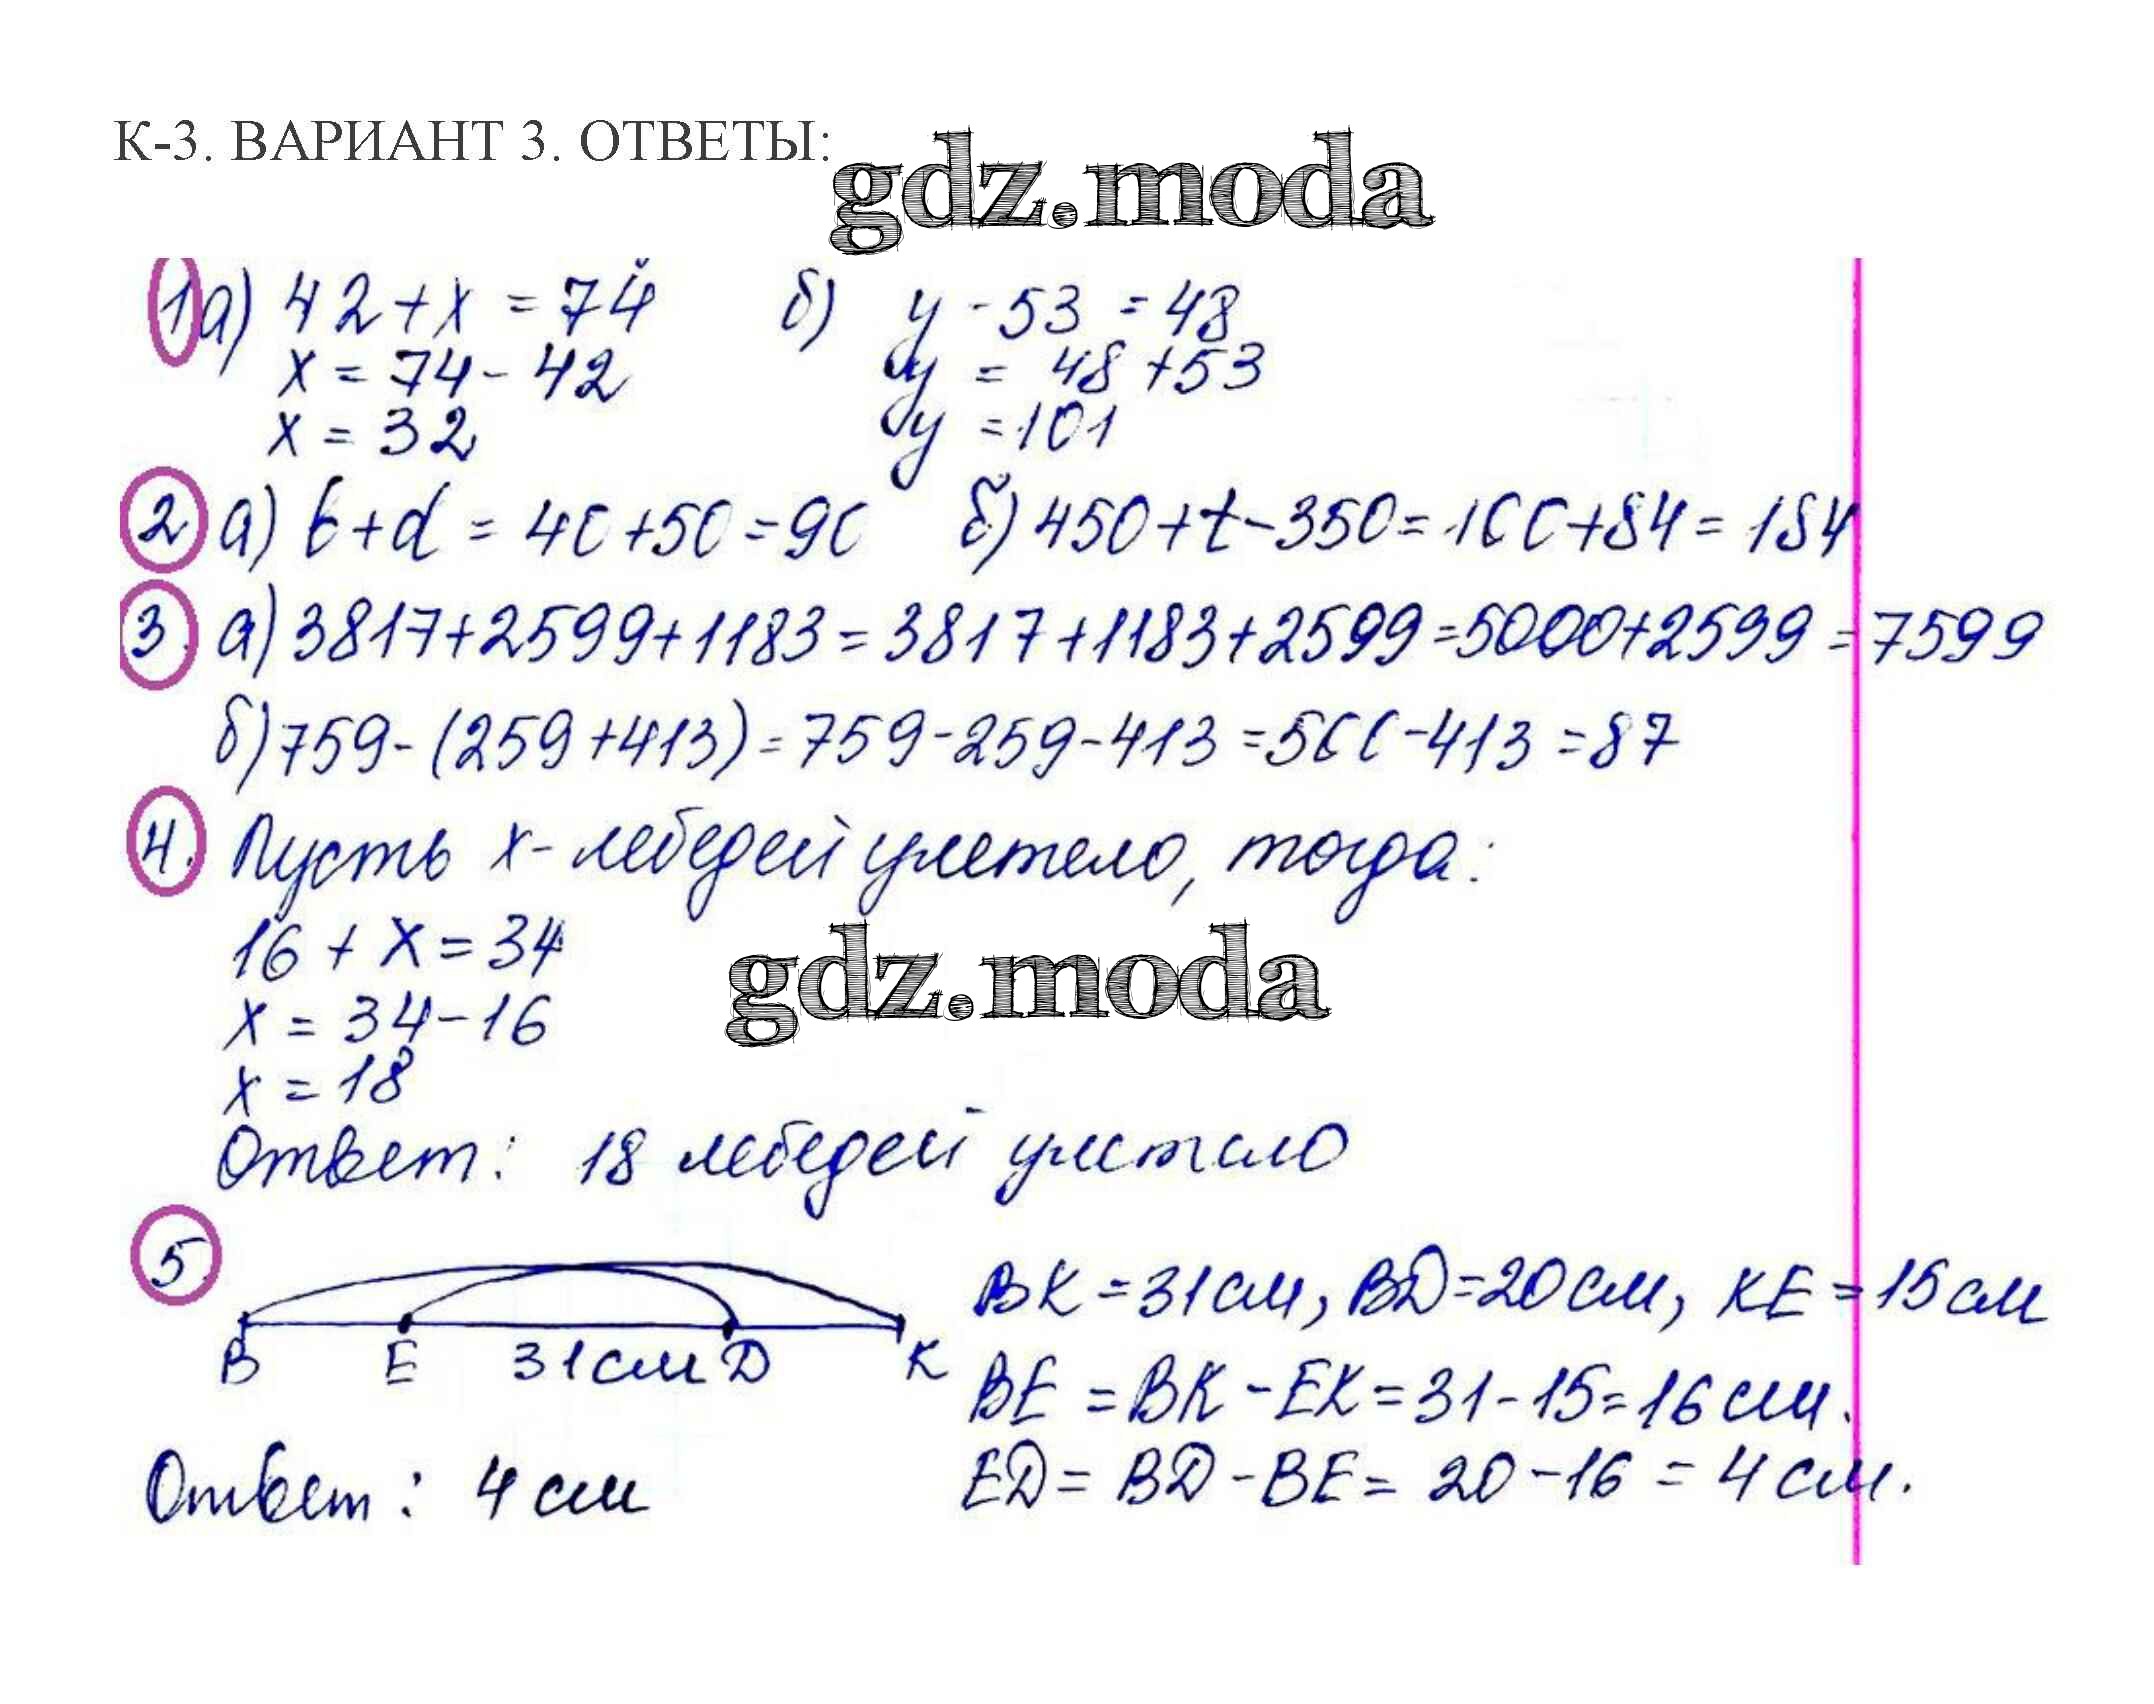 К-3. ВАРИАНТ 3. ОТВЕТЫ:
gdz.moda
1 а) 42 + x = 74 б) y - 53 = 48
x = 74 - 42 y = 48 + 53
x = 32 y = 101
2 а) b + d = 40 + 50 = 90 б) 450 + t - 350 = 100 + 84 = 184
3. а) 3817 + 2599 + 1183 = 3817 + 1183 + 2599 = 5000 + 2599 = 7599
б) 759 - (259 + 413) = 759 - 259 - 413 = 500 - 413 = 87
4. Пусть x - лебедей улетело, тогда:
16 + x = 34
gdz.moda
x = 34 - 16
x = 18
Ответ: 18 лебедей улетело
5.
B E 31 см D K
BK = 31 см, BD = 20 см, KE = 15 см
BE = BK - EK = 31 - 15 = 16 см.
ED = BD - BE = 20 - 16 = 4 см.
Ответ: 4 см